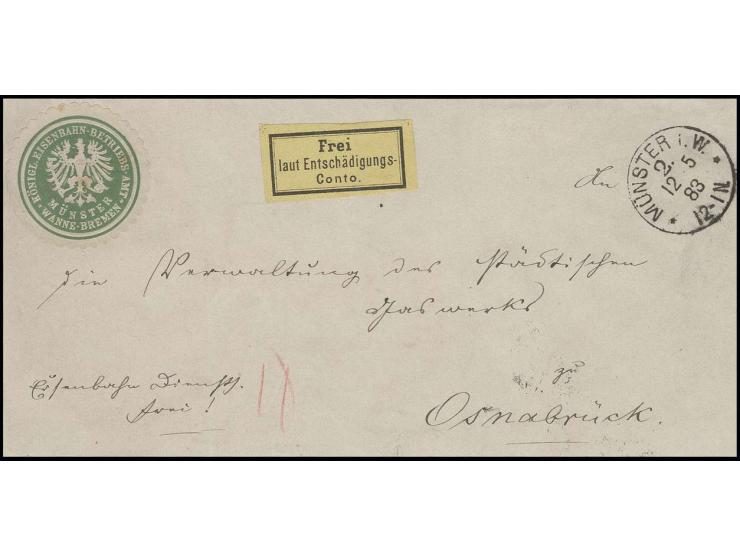 KÖNIGL. EISENBAHN-BETRIEBS-AMT
MÜNSTER
* WANNE-BREMEN *
Frei
laut Entschädigungs-
Conto.
MÜNSTER i. W.
2.
12 5
83
12-1N
An
die Verwaltung des städtischen
Gaswerks
zu
Osnabrück.
Eisenbahn Dienst.
frei!